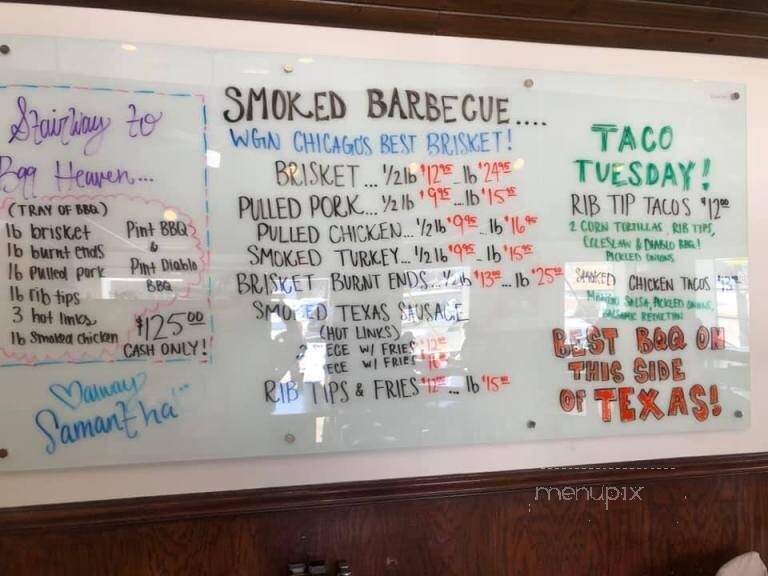 Stairway to
Bqq Heaven...
(TRAY OF BBQ)
1lb brisket
1b burnt ends
1b Pulled pork
1b rib tips
3 hot links
1b Smoked chicken
Pint BBQ
&
Pint Diablo
BBQ
$125.00
CASH ONLY!
Samantha
SMOKED BARBECUE....
WGN CHICAGO'S BEST BRISKET!
BRISKET... 1/2 lb $12.95 .. lb $24.95
PULLED PORK... 1/2 lb $9.95 ... lb $15.95
PULLED CHICKEN... 1/2 lb $9.95 .. lb $16.95
SMOKED TURKEY... 1/2 lb $9.95 .. lb $15.95
BRISKET BURNT ENDS... 1/2 lb $13.95 ... lb $25.95
SMOKED TEXAS SAUSAGE
(HOT LINKS)
W/ FRIES
W/ FRIES
RIB TIPS & FRIES $12.95 ... lb $15.95
TACO
TUESDAY!
RIB TIP TACOS $12.00
2 CORN TORTILLAS, RIB TIPS,
COLESLAW & DIABLO BBQ!
PICKLED ONIONS
SMOKED CHICKEN TACOS
MANGO SALSA, PICKLED ONIONS,
BALSAMIC REDUCTION
BEST BQQ ON
THIS SIDE
OF TEXAS!
menupix